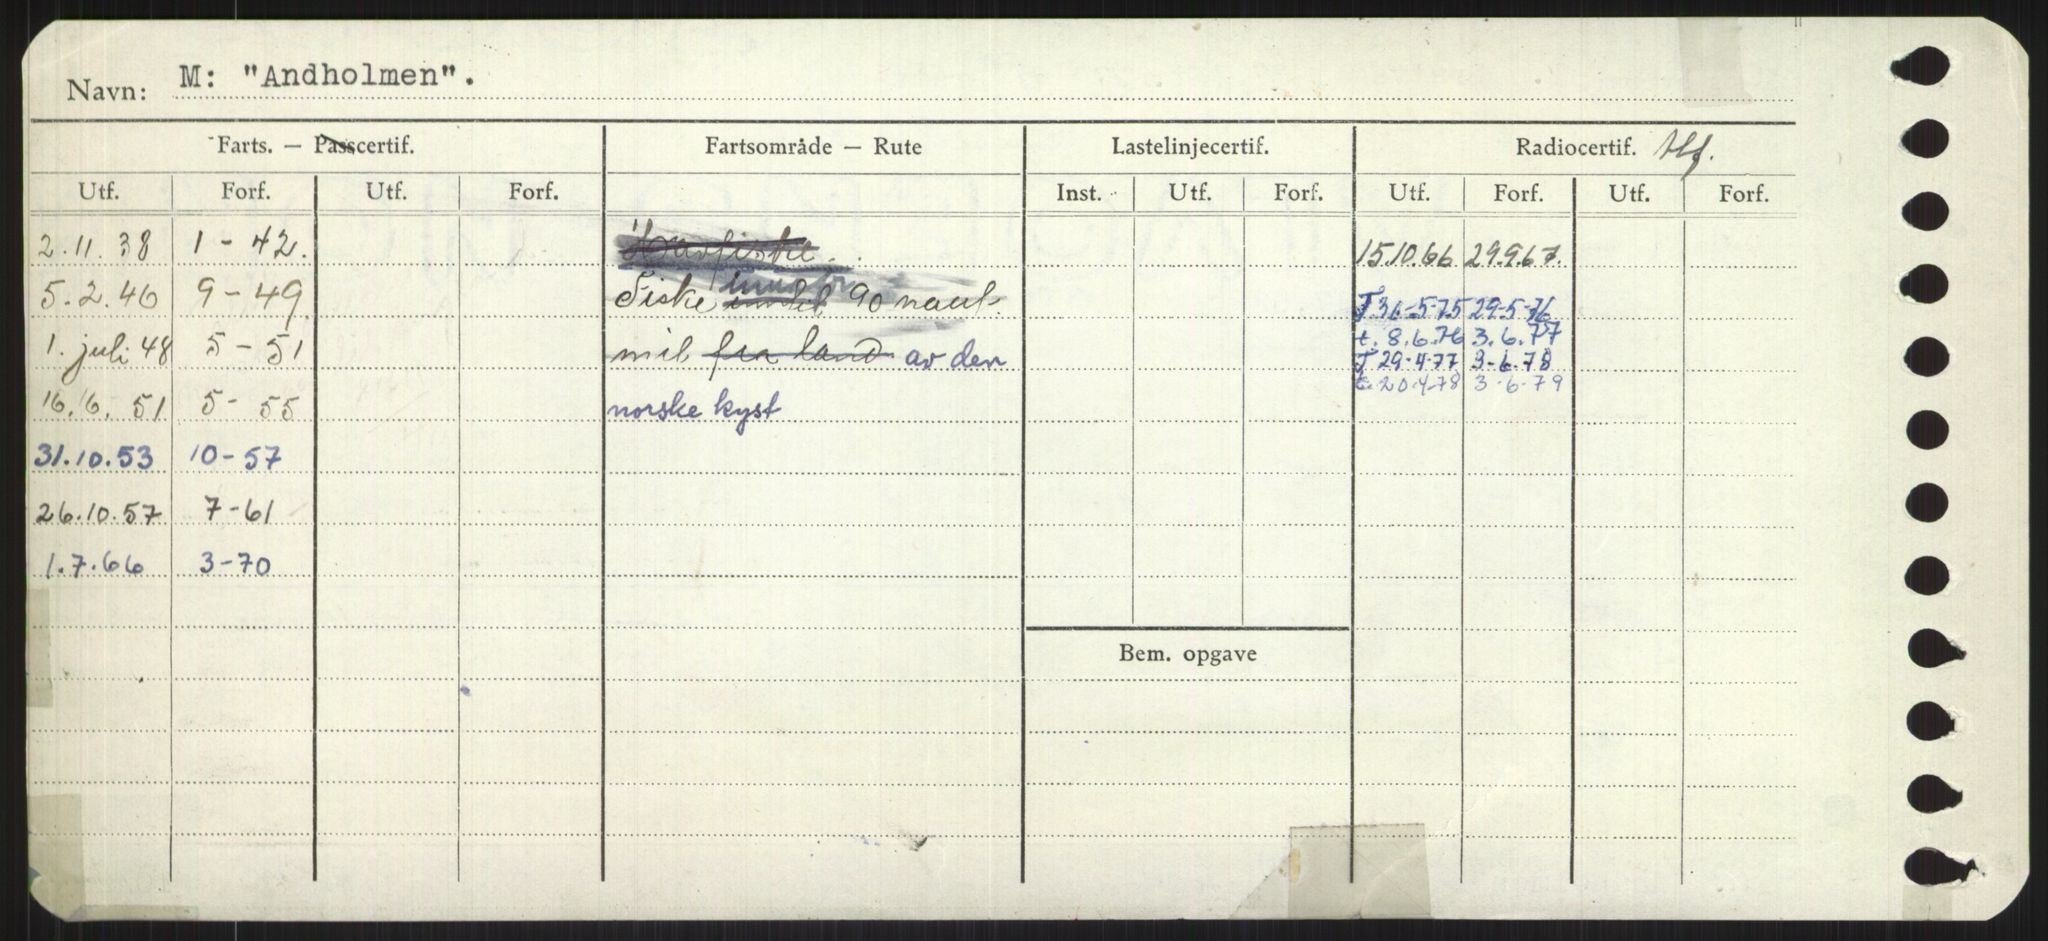 Navn: M: "Andholmen".
Farts. — Passcertif. Fartsområde — Rute Lastelinjecertif. Radiocertif. tlf.
Utf. Forf. Utf. Forf. Inst. Utf. Forf. Utf. Forf. Utf. Forf.
2.11.38 1-42. Havfiske. 15.10.66 29.9.67.
5.2.46 9-49 Fiske inntil 90 naut. 29-5-76
t. 8.6.76 3.6.77
1. juli 48 5-51 mil fra land av den T 29-4-77 3-6-78
16.6.51 5-55 norske kyst 20.4.78 3-6-79
31.10.53 10-57
26.10.57 7-61
1.7.66 3-70
Bem. opgave